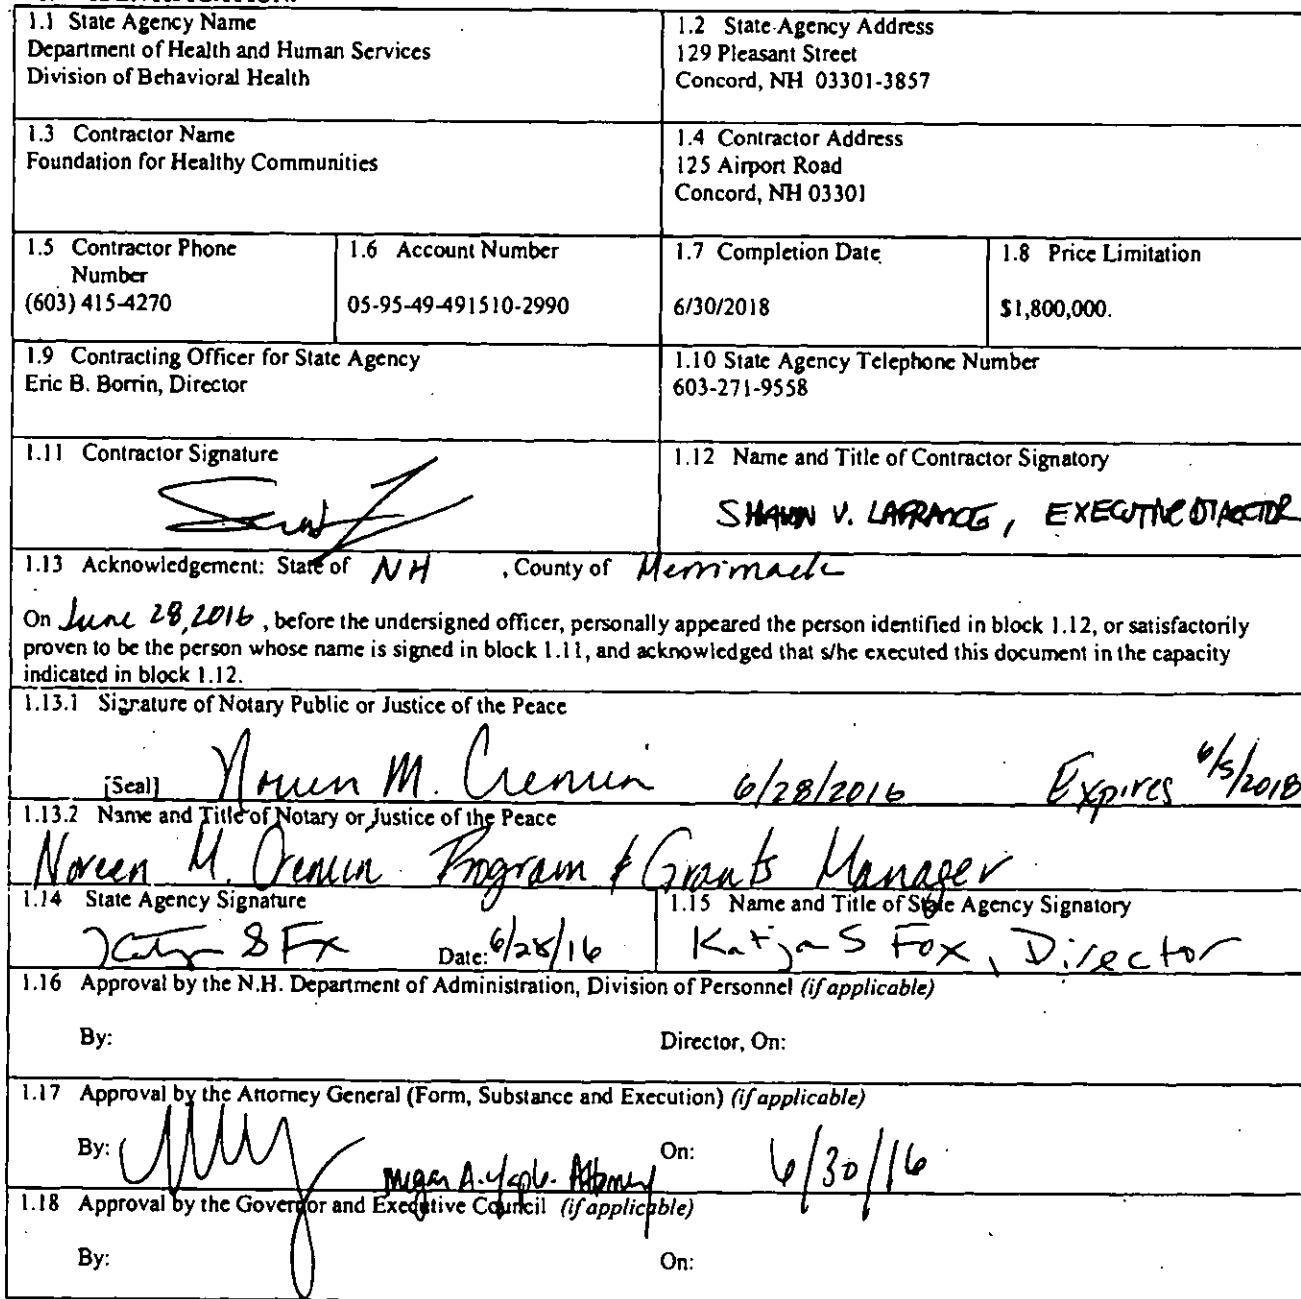 1.1 State Agency Name
Department of Health and Human Services
Division of Behavioral Health
1.2 State Agency Address
129 Pleasant Street
Concord, NH 03301-3857
1.3 Contractor Name
Foundation for Healthy Communities
1.4 Contractor Address
125 Airport Road
Concord, NH 03301
1.5 Contractor Phone
Number
(603) 415-4270
1.6 Account Number
05-95-49-491510-2990
1.7 Completion Date
6/30/2018
1.8 Price Limitation
$1,800,000.
1.9 Contracting Officer for State Agency
Eric B. Borrin, Director
1.10 State Agency Telephone Number
603-271-9558
1.11 Contractor Signature
1.12 Name and Title of Contractor Signatory
SHAWN V. LAFRANCE, EXECUTIVE DIRECTOR
1.13 Acknowledgement: State of NH , County of Merrimack
On June 28, 2016 , before the undersigned officer, personally appeared the person identified in block 1.12, or satisfactorily
proven to be the person whose name is signed in block 1.11, and acknowledged that s/he executed this document in the capacity
indicated in block 1.12.
1.13.1 Signature of Notary Public or Justice of the Peace
[Seal] M. 6/28/2016 Expires 6/5/2018
1.13.2 Name and Title of Notary or Justice of the Peace
Noreen M. Program & Grants Manager
1.14 State Agency Signature
Date: 6/28/16
1.15 Name and Title of State Agency Signatory
Katja S Fox, Director
1.16 Approval by the N.H. Department of Administration, Division of Personnel (if applicable)
By: Director, On:
1.17 Approval by the Attorney General (Form, Substance and Execution) (if applicable)
By: Megan A. Attorney On: 6/30/16
1.18 Approval by the Governor and Executive Council (if applicable)
By: On: